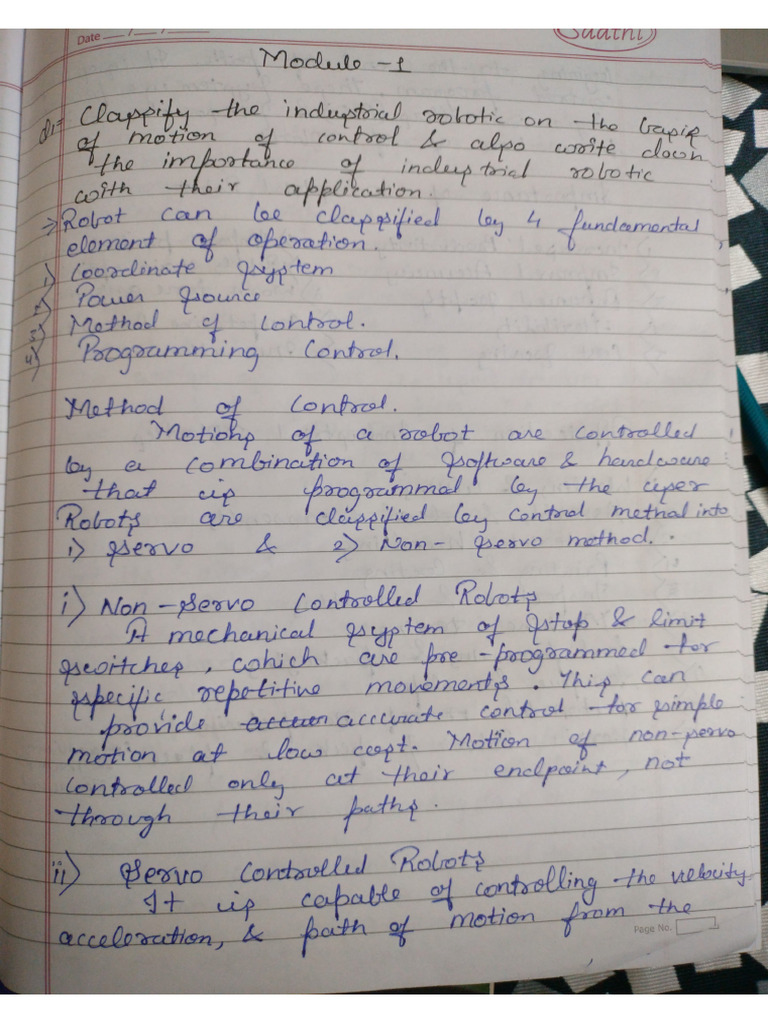 Date
Saathi
Module -1
Q1= Classify the industrial robotic on the basis
of motion of control & also write down
the importance of industrial robotic
with their application.
=> Robot can be classified by 4 fundamental
element of operation.
1) Coordinate system
2) Power source
3) Method of control.
4) Programming Control.
Method of Control.
Motions of a robot are controlled
by a combination of software & hardware
that is programmed by the user
Robots are classified by control method into
1) Servo & 2) Non-Servo method.
i) Non-Servo Controlled Robots
A mechanical system of stop & limit
switches, which are pre-programmed for
specific repetitive movements. This can
provide accurate control for simple
motion at low cost. Motion of non-servo
controlled only at their endpoint, not
through their paths.
ii) Servo Controlled Robots
It is capable of controlling the velocity
acceleration, & path of motion from the
Page No. 1